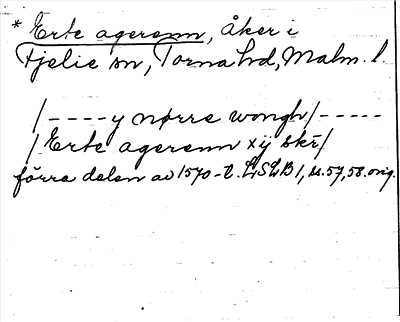 * Erte agerenn, åker i
Fjelie sn, Torna hd, Malm. l.
/----y nørre wongh/-----
/Erte agerenn xij skr̄/
förra delen av 1570-t. LSLB 1, ss. 57, 58. orig.